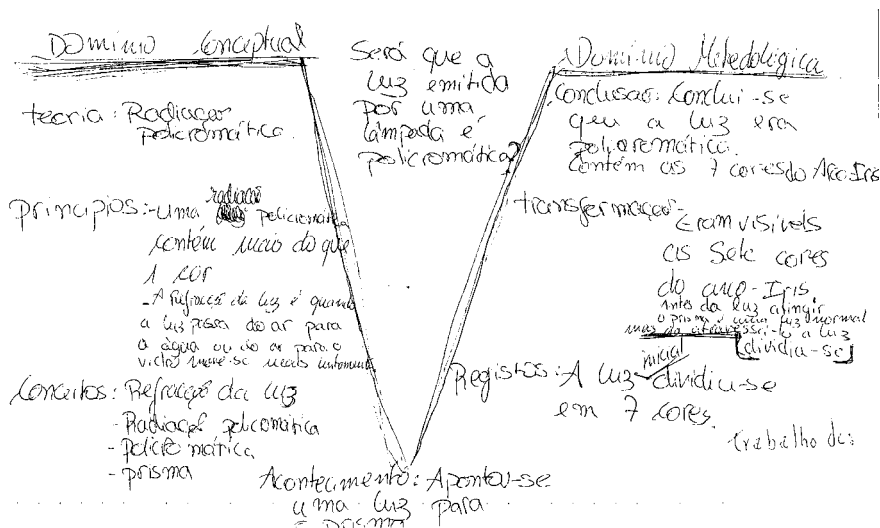 Domínio Conceptual
teoria: Radiaçao
policromática.
principios: -uma radiação policromática
contém mais do que
1 cor
- A Refracção da luz é quando
a luz passa do ar para
a água ou do ar para o
vidro move-se mais lentamente
Conceitos: Refracção da luz
- Radiação policromática
- policromática
- prisma
Será que a
luz emitida
por uma
lâmpada é
policromática?
Acontecimento: Apontou-se
uma luz para
o prisma
Domínio Metodológica
Conclusão: Conclui-se
que a luz era
policromática.
Contém as 7 cores do Arco-Iris
transformaçao-
Eram visíveis
as sete cores
do arco-Iris
Antes da luz atingir
o prisma é uma luz normal
mas ao atravessá-lo a luz
dividiu-se
Registos: A luz inicial dividiu-se
em 7 cores.
trabalho de: